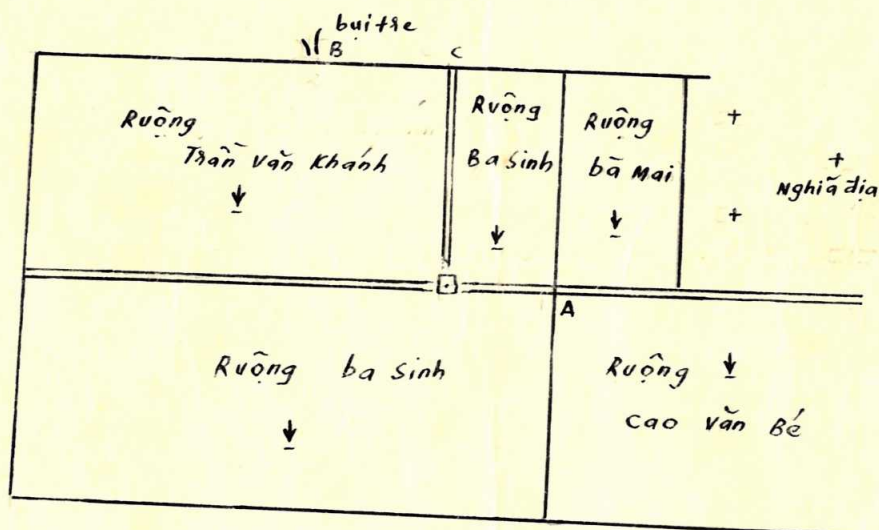 bụi tre
B
C
Ruộng
Trần Văn Khánh
Ruộng
Ba Sinh
Ruộng
bà Mai
Nghĩa địa
A
Ruộng ba Sinh
Ruộng
Cao Văn Bé